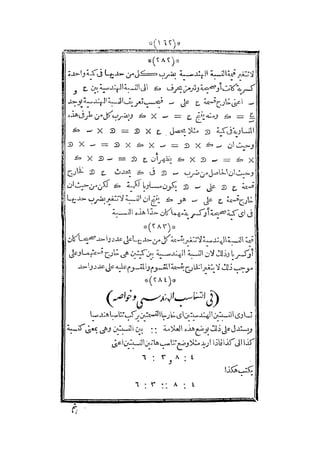 *(١٦٢)*
*(٢٨٢)*
لا تتغير قيمة النسبة الهندسية بضرب كل من حديها فى كمية واحدة
كسرية كانت أو صحيحة ولنرمز بحرف ى الى النسبة الهندسية بين ع و
ـ اعنى خارج قسمة ع على ـ فيحسب تعريف النسبة الهندسية يوجد
ع = ى ومنه ينتج ع = ـ × ى وبضرب كل من طرفى هذه
المتساوية فى كمية د مثلا يحصل ع × د = د × ـ × ى
وحيث ان ـ × ى = ى × ـ
وحيث ان الحاصل من ضرب ـ د فى ى يحدث ع د فخارج
قسمة ع د على ـ د يكون مساويا لكمية ى لكن من حيث ان
خارج قسمة ع على ـ هو ى ينتج ان النسبة لا تتغير بضرب حديها
فى اى كمية صحيحة أو كسرية مهما كان حدا هذه النسبة
*(٢٨٣)*
قيمة النسبة الهندسية لا تتغير بقسمة كل من حديها على عدد واحد صحيحا كان
أو كسريا وذلك لان النسبة الهندسية بين كميتين هى خارج قسمتهما وعلى
موجب ذلك لا يتغير الخارج بقسمة المقسوم والمقسوم عليه على عدد واحد
*(٢٨٤)*
(فى التناسب الهندسى وخواصه)
تساوى النسبتين الهندسيتين اى خارجا القسمتين يركب تناسبا هندسيا
ويستدل على ذلك بوضع هذه العلامة :: بين النسبتين وهى بمعنى كنسبة
كذا الى كذا فاذا اريد مثلا وضع تناسب هاتين النسبتين اعنى
٤ : ٨ و ٣ : ٦
يكتب هكذا
٤ : ٨ :: ٣ : ٦